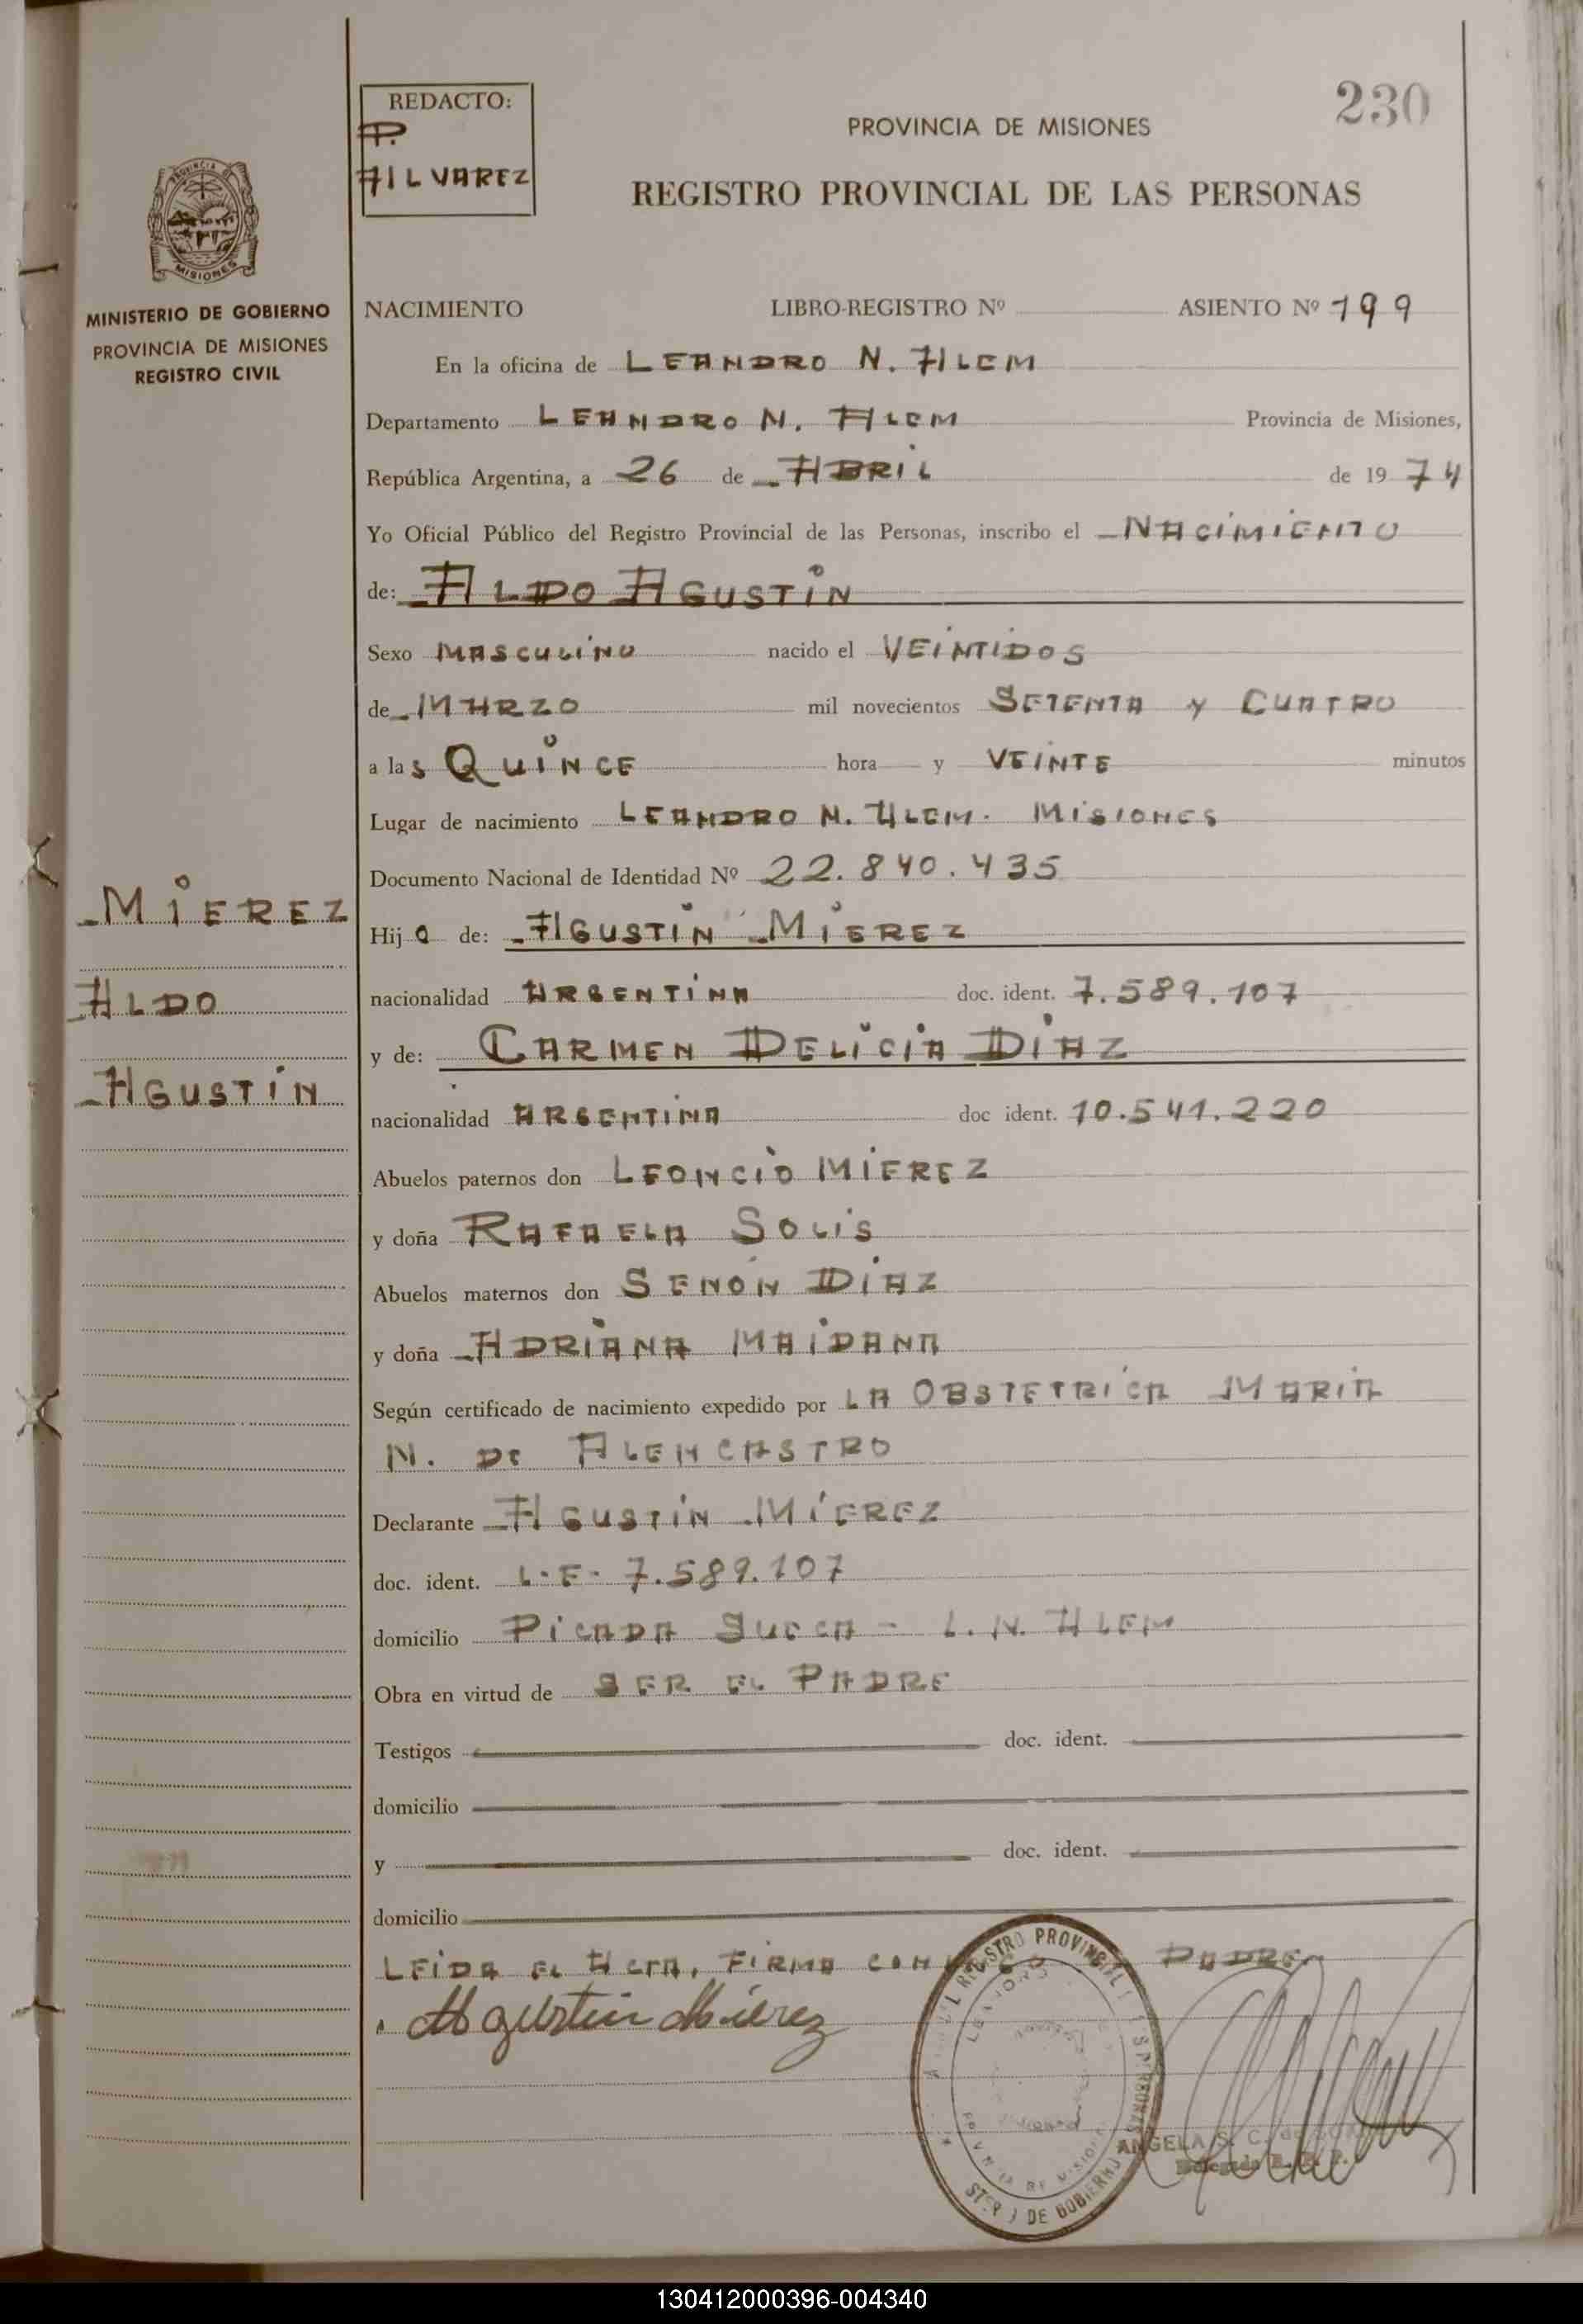 230
REDACTO:
P.
ALVAREZ
PROVINCIA DE MISIONES
REGISTRO PROVINCIAL DE LAS PERSONAS
PROVINCIA
MISIONES
MINISTERIO DE GOBIERNO
PROVINCIA DE MISIONES
REGISTRO CIVIL
NACIMIENTO LIBRO-REGISTRO Nº ASIENTO Nº 199
En la oficina de LEANDRO N. ALEM
Departamento LEANDRO N. ALEM Provincia de Misiones,
República Argentina, a 26 de ABRIL de 1974
Yo Oficial Público del Registro Provincial de las Personas, inscribo el NACIMIENTO
de: ALDO AGUSTIN
Sexo MASCULINO nacido el VEINTIDOS
de MARZO mil novecientos SETENTA y CUATRO
a las QUINCE hora y VEINTE minutos
Lugar de nacimiento LEANDRO N. ALEM. MISIONES
Documento Nacional de Identidad Nº 22.840.435
MIEREZ
ALDO
AGUSTIN
Hijo de: AGUSTIN MIEREZ
nacionalidad ARGENTINA doc. ident. 7.589.107
y de: CARMEN DELICIA DIAZ
nacionalidad ARGENTINA doc ident. 10.541.220
Abuelos paternos don LEONCIO MIEREZ
y doña RAFAELA SOLIS
Abuelos maternos don SENON DIAZ
y doña ADRIANA MAIDANA
Según certificado de nacimiento expedido por LA OBSTETRICA MARIA
N. DE ALENCASTRO
Declarante AGUSTIN MIEREZ
doc. ident. L.E. 7.589.107
domicilio PICADA SUECA - L.N. ALEM
Obra en virtud de SER EL PADRE
Testigos doc. ident.
domicilio
y doc. ident.
domicilio
LEIDA EL ACTA, FIRMA CONMIGO PADRE
Agustin Mierez
REGISTRO PROVINCIAL PERSONAS
DE GOBIERNO
ANGELA S. C. de
Delegada R. P. P.
130412000396-004340